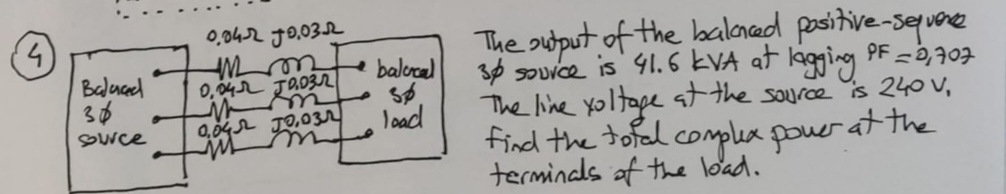 4
0,04Ω J0,03Ω
0,04Ω J0,03Ω
0,04Ω J0,03Ω
Balanced
3ϕ
source
balanced
3ϕ
load
The output of the balanced positive-sequence
3ϕ source is 41.6 kVA at lagging PF=0,707
The line voltage at the source is 240 V.
find the total complex power at the
terminals of the load.